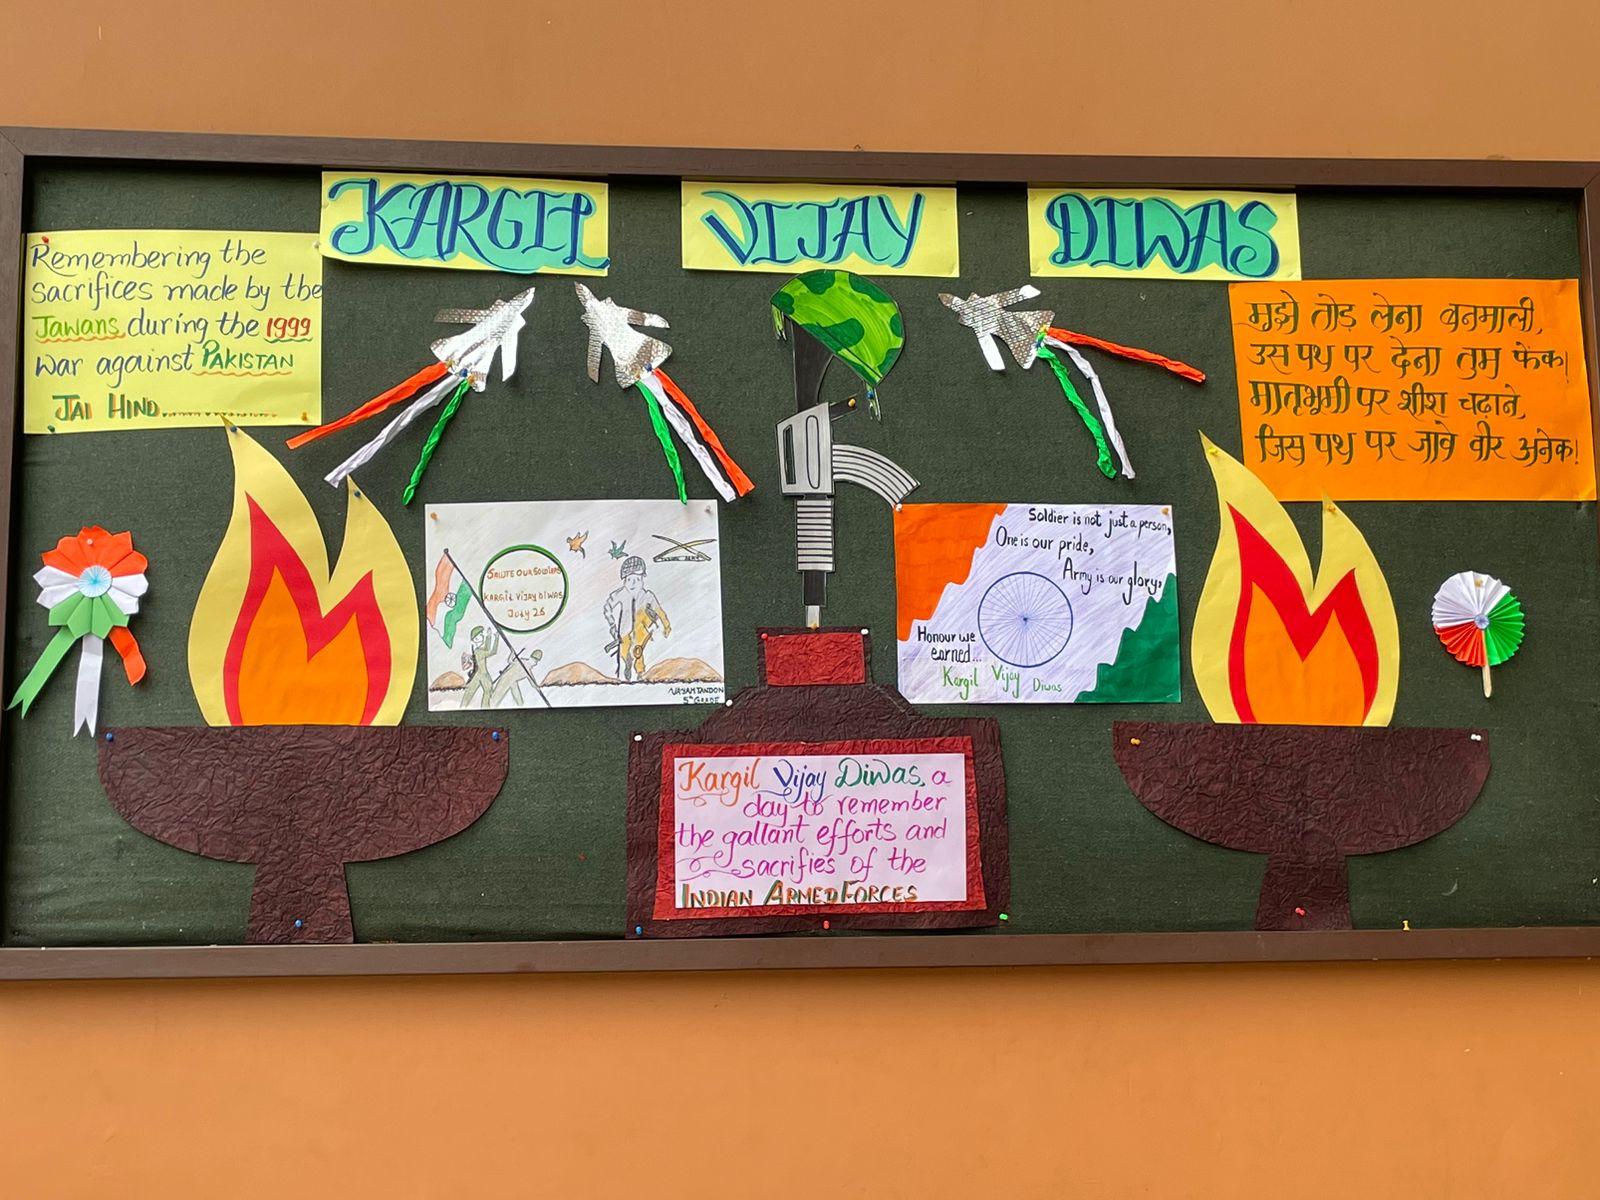 KARGIL VIJAY DIWAS
Remembering the
sacrifices made by the
Jawans during the 1999
war against PAKISTAN
JAI HIND..................
मुझे तोड़ लेना बनमाली,
उस पथ पर देना तुम फेंक।
मातृभूमी पर शीश चढ़ाने,
जिस पथ पर जावे वीर अनेक!
SALUTE OUR SOLDIERS
KARGIL VIJAY DIWAS
July 26
INDIAN ARMY
VAYAM TANDON
5th GRADE
Soldier is not just a person,
One is our pride,
Army is our glory,
Honour we
earned...
Kargil Vijay Diwas
Kargil Vijay Diwas, a
day to remember
the gallant efforts and
sacrifies of the
INDIAN ARMED FORCES